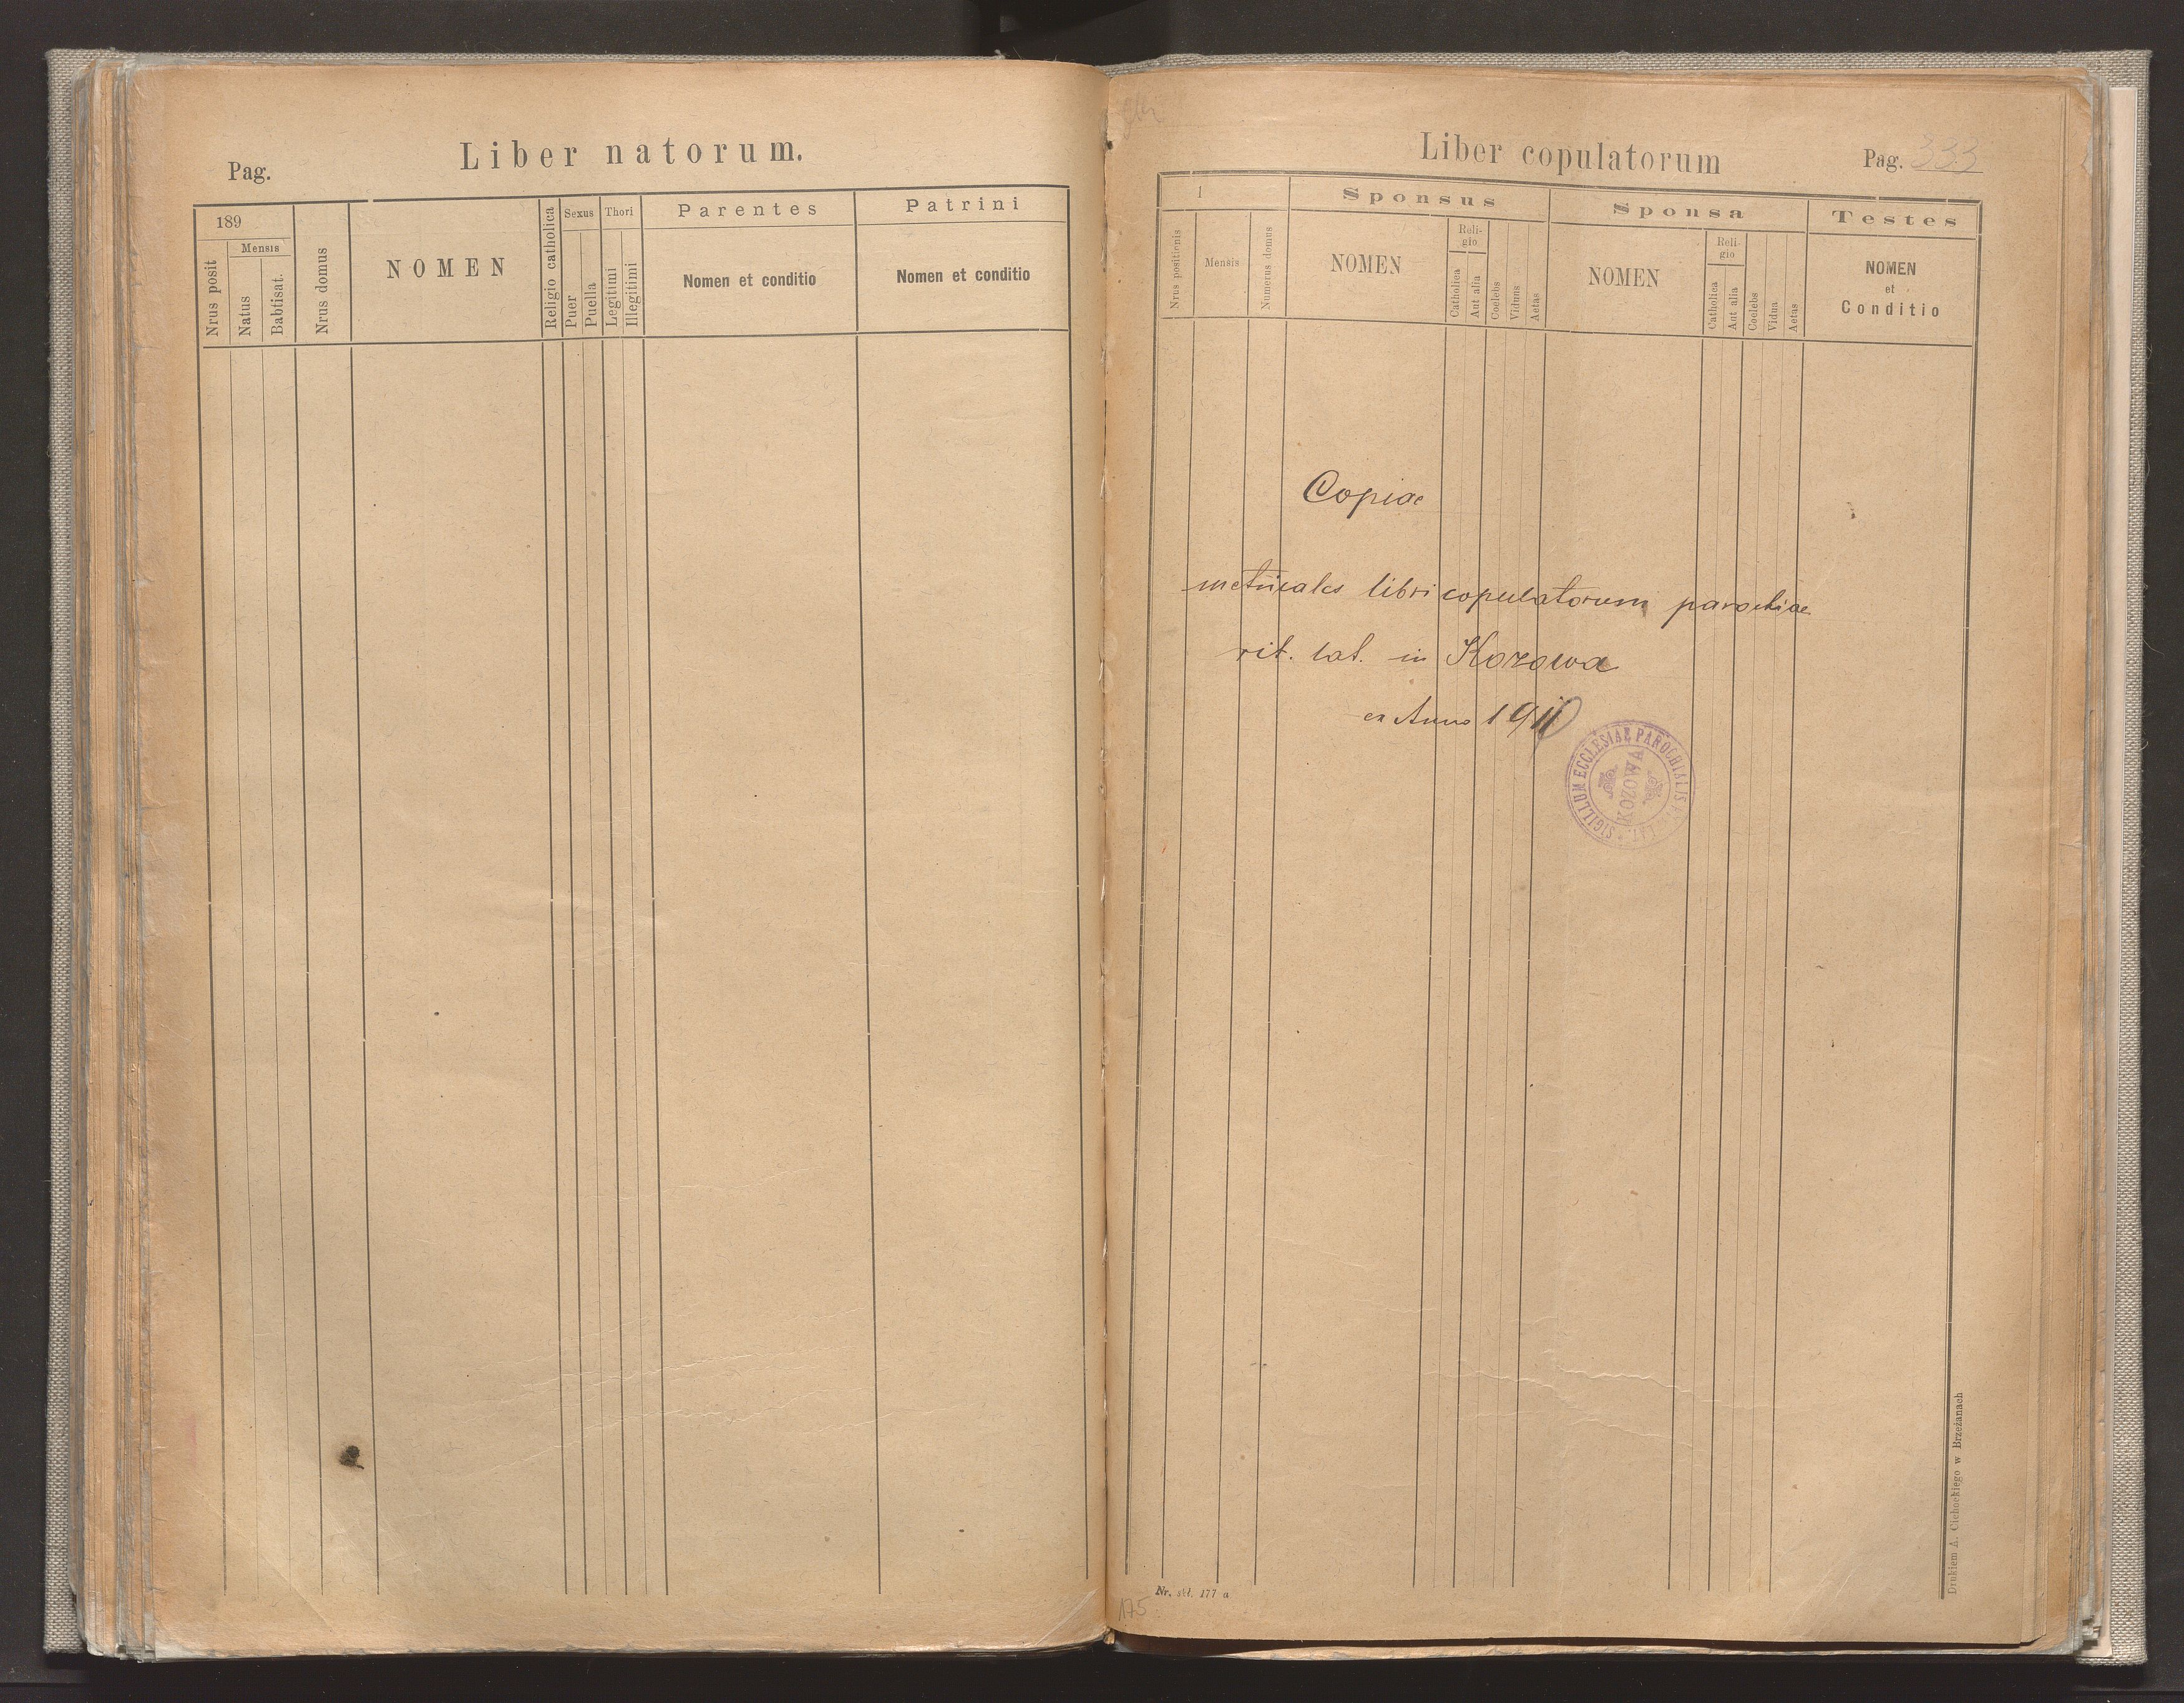 Pag.
Liber natorum.
189
Nrus posit
Mensis
Natus
Babtisat.
Nrus domus
NOMEN
Religio catholica
Sexus
Puer
Puella
Thori
Legitimi
Illegitimi
Parentes
Nomen et conditio
Patrini
Nomen et conditio
Liber copulatorum
Pag. 333
1
Nrus positionis
Mensis
Numerus domus
Sponsus
NOMEN
Reli-
gio
Catholica
Aut alia
Coelebs
Viduus
Aetas
Sponsa
NOMEN
Reli-
gio
Catholica
Aut alia
Coelebs
Vidua
Aetas
Testes
NOMEN
et
Conditio
Copiae
metricales libri copulatorum parochiae
rit. lat. in Kozowa
ex Anno 191
SIGILLUM ECCLESIAE PAROCHIALIS LAT.
KOZOWA
Drukiem A. Cichockiego w Brzeżanach
Nr. skł. 177 a
175